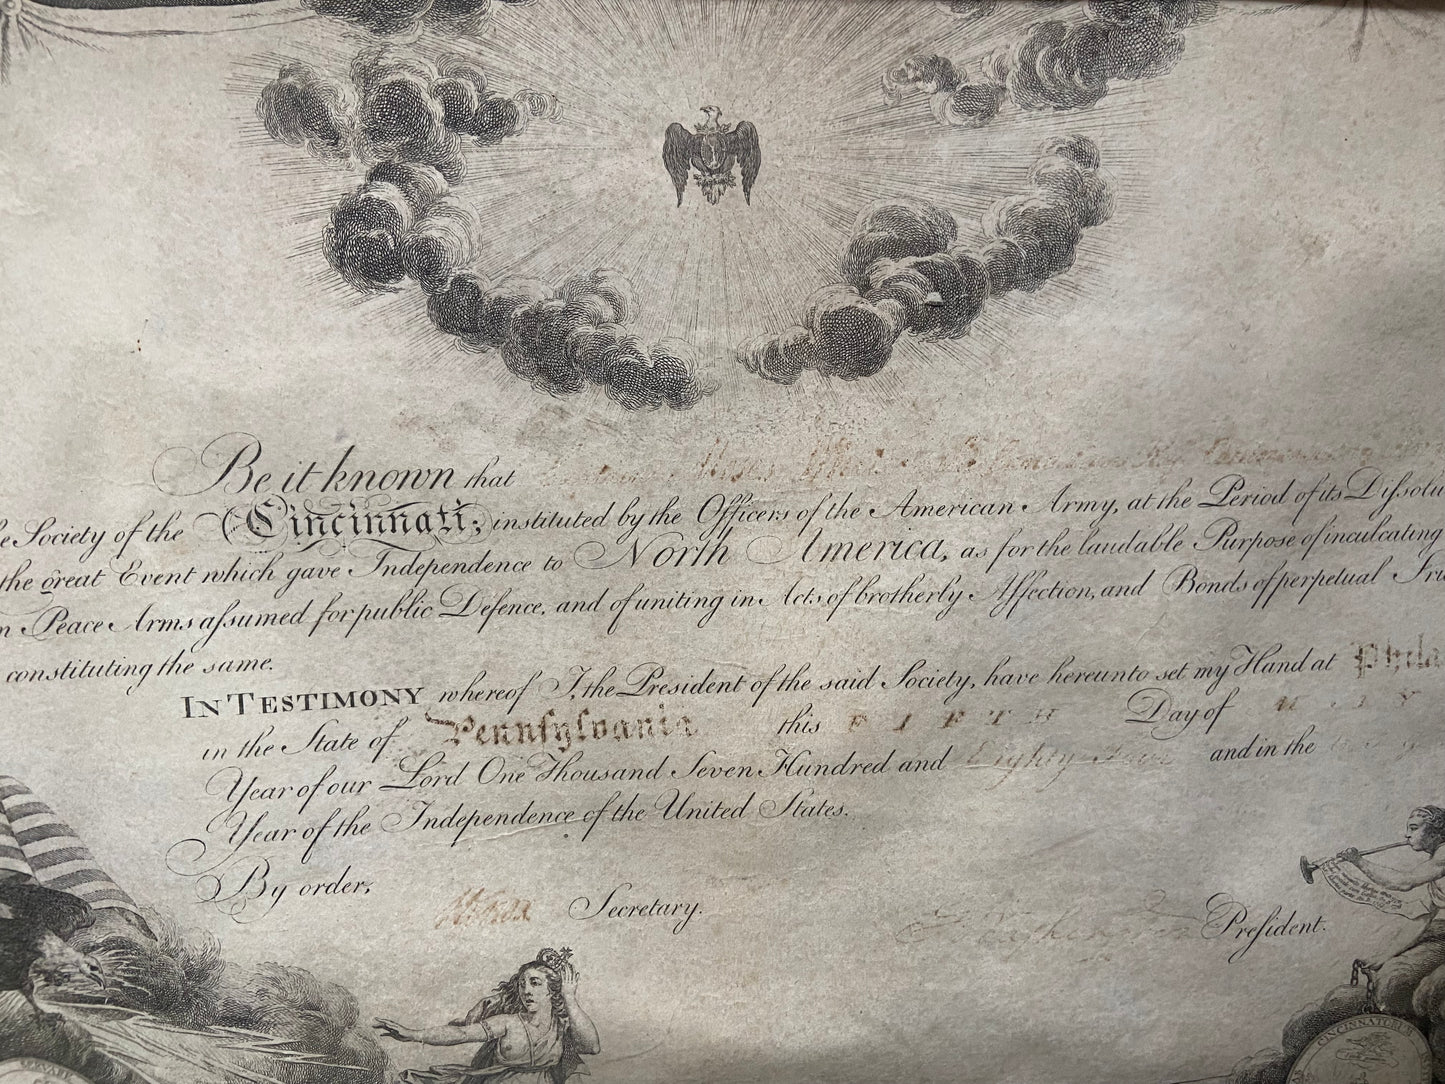 Be it known that Moses
e Society of the Cincinnati; instituted by the Officers of the American Army, at the Period of its Dissolu
the great Event which gave Independence to North America, as for the laudable Purpose of inculcating
n Peace Arms assumed for public Defence, and of uniting in Acts of brotherly Affection, and Bonds of perpetual Fri
constituting the same.
In Testimony whereof I, the President of the said Society, have hereunto set my Hand at Phila
in the State of Pennsylvania this FIFTH Day of MAY
Year of our Lord One Thousand Seven Hundred and Eighty Four and in the
Year of the Independence of the United States.
By order,
HKnox Secretary. G Washington President.
CINCINNATUS
SERVARE